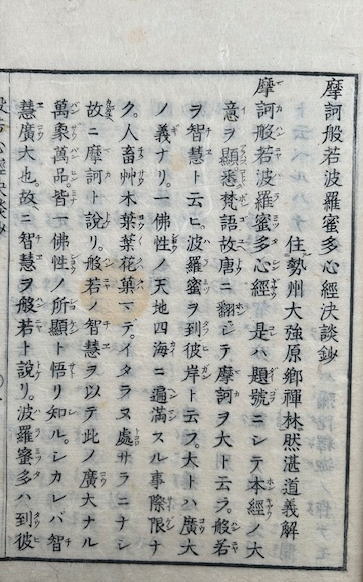 摩訶般若波羅蜜多心經決談鈔
住勢州大強原鄉禪林然湛道義解
摩訶般若波羅蜜多心經 是ハ題號ニシテ本經ノ大
意ヲ顯悉梵語故唐ニ翻シテ摩訶ヲ大ト云ヲ般若
ヲ智慧ト云ヒ波羅蜜ヲ到彼岸ト云フ大トハ廣大
ノ義ナリ一佛性ノ天地四海ニ遍滿スル事際限ナ
ク人畜艸木葉葉花菓マデイタラヌ處サラニナシ
故ニ摩訶ト說リ般若ノ智慧ヲ以テ此ノ廣大ナル
萬象萬品皆一佛性ノ所顯ト悟リ知ルシカレバ智
慧廣大也故ニ智慧ヲ般若ト說リ波羅蜜多ハ到彼
心經決談鈔